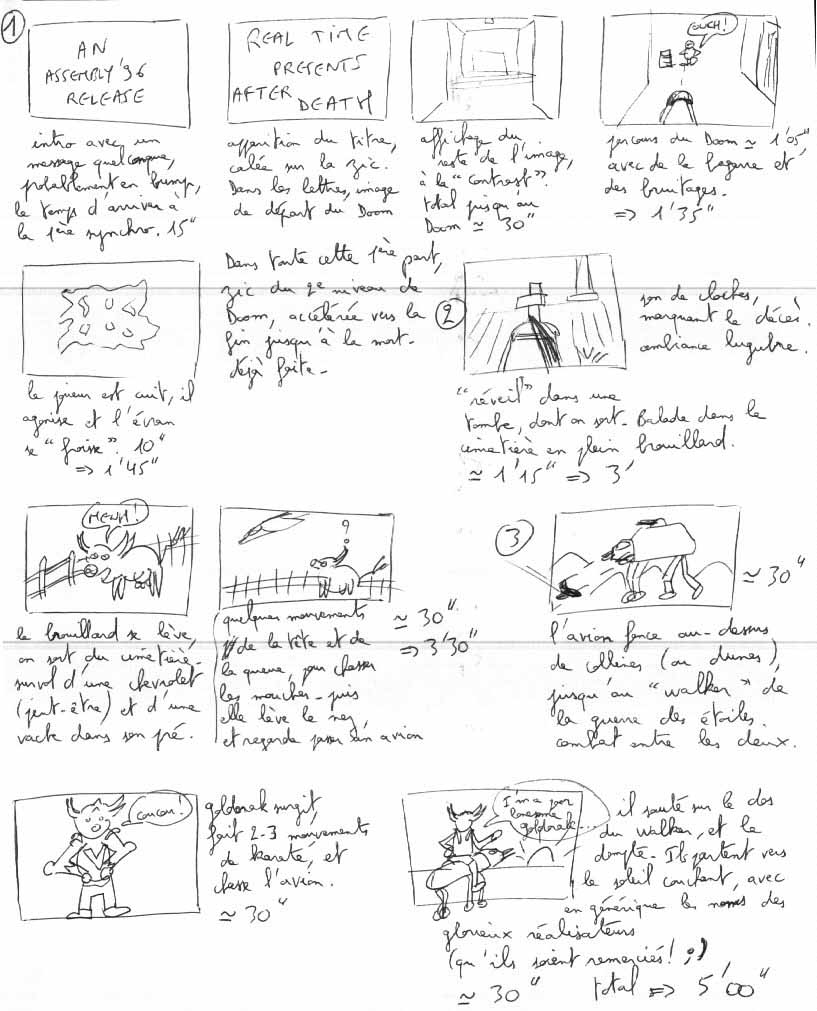 1
AN
ASSEMBLY '96
RELEASE
intro avec un
message quelconque,
probablement en bump,
le temps d'arriver à
la 1ère synchro. 15"
REAL TIME
PRESENTS
AFTER
DEATH
apparition du titre,
calée sur la zic.
Dans les lettres, image
de départ du Doom
affichage du
reste de l'image,
à la "contrast".
total jusqu'au
Doom ≃ 30"
OUCH!
parcours du Doom ≃ 1'05"
avec de la bagarre et
des bruitages.
=> 1'35"
le joueur est cuit, il
agonise et l'écran
se "froisse". 10"
=> 1'45"
Dans toute cette 1ère part,
zic du 2e niveau de
Doom, accélérée vers la
fin jusqu'à la mort.
déjà faite.
2
son de cloches,
marquant le décès.
ambiance lugubre.
"réveil" dans une
tombe, dont on sort. Balade dans le
cimetière en plein brouillard.
≃ 1'15" => 3'
MEUH!
le brouillard se lève,
on sort du cimetière.
survol d'une chevrolet
(peut-être) et d'une
vache dans son pré.
?
quelques mouvements
de la tête et de
la queue, pour chasser
les mouches. puis
elle lève le nez,
et regarde passer un avion
≃ 30"
=> 3'30"
3
≃ 30"
l'avion fonce au-dessus
de collines (ou dunes),
jusqu'au "walker" de
la guerre des étoiles.
combat entre les deux.
Coucou!
goldorak surgit,
fait 2-3 mouvements
de karaté, et
chasse l'avion.
≃ 30"
I'm a poor
lonesome
goldorak...
il saute sur le dos
du walker, et le
dompte. Ils partent vers
le soleil couchant, avec
en générique les noms des
glorieux réalisateurs
(qu'ils soient remerciés! ;)
≃ 30" total => 5'00"